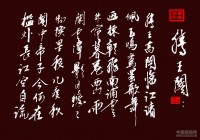 滕王閣:
滕王高閣臨江渚
佩玉鳴鸞罷歌舞
画棟朝飛南浦雲
珠簾暮捲西山雨
閑雲潭影日悠悠
物換星移几度秋
閣中帝子今何在
檻外長江空自流